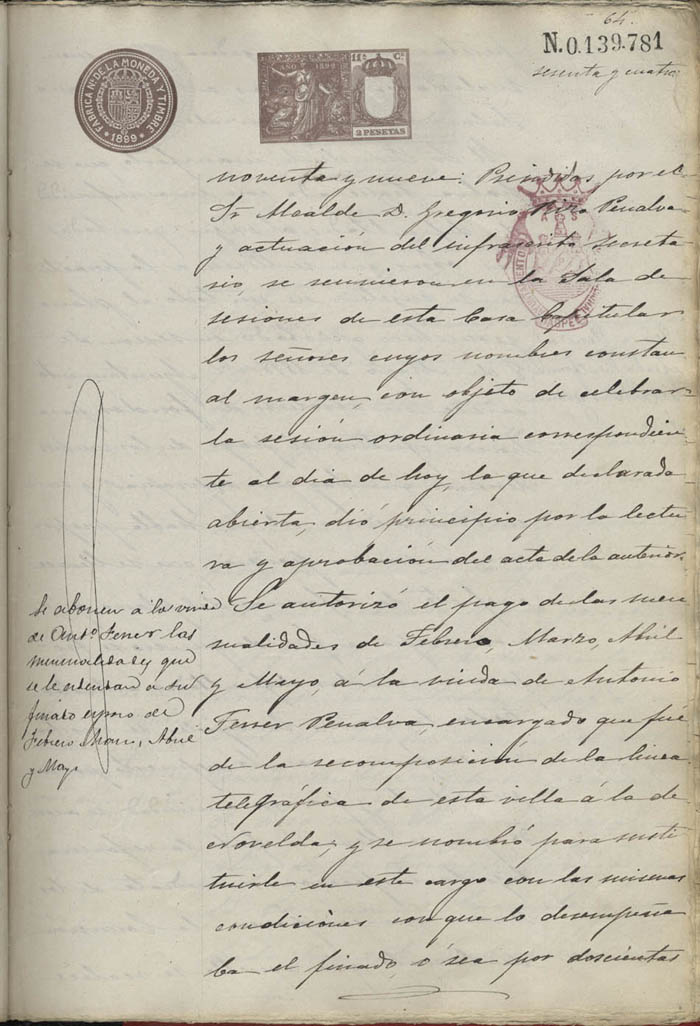 64.
N.0.139.781
sesenta y cuatro
FABRICA Nal DE LA MONEDA Y TIMBRE
1899
AÑO 1899
11ª C.
2 PESETAS
noventa y nueve: Presididos por el
Sr Alcalde D. Gregorio Rizo Penalva
y actuación del infrascrito Secreta
rio, se reunieron en la Sala de
sesiones de esta Casa Capitular
los señores cuyos nombres constan
al margen, con objeto de celebrar
la sesión ordinaria correspondien
te al dia de hoy, la que declarada
abierta, dió principio por la lectu
ra y aprobación del acta de la anterior.
Se abonen á la viuda
de Antº Ferrer las
mensualidades que
se le adeudan a su
finado esposo de
Febrero Marzo, Abril
y Mayo
Se autorizó el pago de las men
sualidades de Febrero, Marzo, Abril
y Mayo, á la viuda de Antonio
Ferrer Penalva, encargado que fué
de la recomposición de la linea
telegráfica de esta villa á la de
Novelda, y se nombró para susti
tuirle en este cargo con las mismas
condiciones con que lo desempeña
ba el finado, ó sea por doscientas